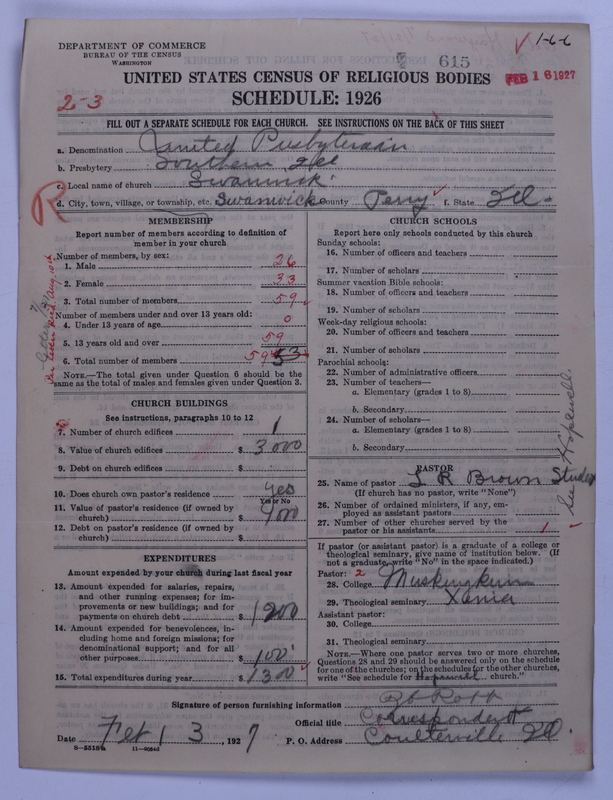 DEPARTMENT OF COMMERCE
BUREAU OF THE CENSUS
WASHINGTON
615
1-6-6
FEB 16 1927
UNITED STATES CENSUS OF RELIGIOUS BODIES
2-3
SCHEDULE: 1926
FILL OUT A SEPARATE SCHEDULE FOR EACH CHURCH. SEE INSTRUCTIONS ON THE BACK OF THIS SHEET
a. Denomination United Presbyterain
b. Presbytery Southern Ill
c. Local name of church Swanwick
R
d. City, town, village, or township, etc. Swanwick County Perry f. State Ill.
MEMBERSHIP
Report number of members according to definition of member in your church
Number of members, by sex:
1. Male 26
2. Female 33
3. Total number of members 59
Number of members under and over 13 years old:
4. Under 13 years of age 0
5. 13 years old and over 59
6. Total number of members 59 53
NOTE.—The total given under Question 6 should be the same as the total of males and females given under Question 3.
CHURCH BUILDINGS
See instructions, paragraphs 10 to 12
7. Number of church edifices 1
8. Value of church edifices $ 3000
9. Debt on church edifices $
10. Does church own pastor's residence Yes
Yes or No
11. Value of pastor's residence (if owned by church) $ 900
12. Debt on pastor's residence (if owned by church) $
EXPENDITURES
Amount expended by your church during last fiscal year
13. Amount expended for salaries, repairs, and other running expenses; for improvements or new buildings; and for payments on church debt $ 1200
14. Amount expended for benevolences, including home and foreign missions; for denominational support; and for all other purposes $ 100
15. Total expenditures during year $ 1300
CHURCH SCHOOLS
Report here only schools conducted by this church
Sunday schools:
16. Number of officers and teachers
17. Number of scholars
Summer vacation Bible schools:
18. Number of officers and teachers
19. Number of scholars
Week-day religious schools:
20. Number of officers and teachers
21. Number of scholars
Parochial schools:
22. Number of administrative officers
23. Number of teachers—
a. Elementary (grades 1 to 8)
b. Secondary
24. Number of scholars—
a. Elementary (grades 1 to 8)
b. Secondary
See Hopewell
PASTOR
25. Name of pastor L R Brown Student
(If church has no pastor, write "None")
26. Number of ordained ministers, if any, employed as assistant pastors
27. Number of other churches served by the pastor or his assistants 1
If pastor (or assistant pastor) is a graduate of a college or theological seminary, give name of institution below. (If not a graduate, write "No" in the space indicated.)
Pastor: 2
28. College Muskingkum
29. Theological seminary Xenia
Assistant pastor:
30. College
31. Theological seminary
NOTE.—Where one pastor serves two or more churches, Questions 28 and 29 should be answered only on the schedule for one of the churches; on the schedules for the other churches, write "See schedule for Hopewell church."
Signature of person furnishing information
Official title Correspondent
Date Feb 13, 1927
P. O. Address Coulterville Ill.